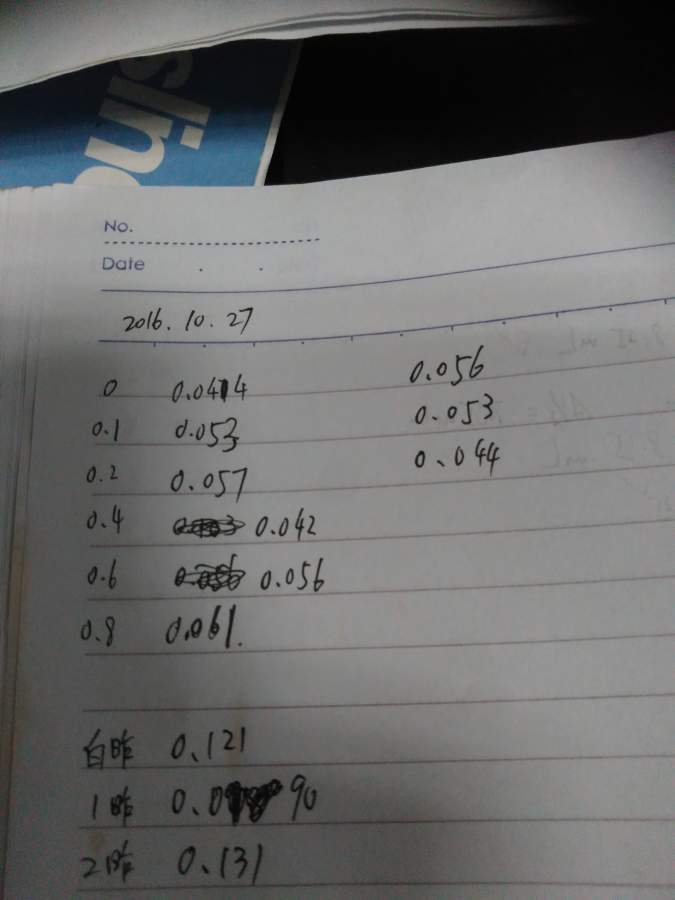 slin
No.
Date . .
2016.10.27
0 0.044 0.056
0.1 0.053 0.053
0.2 0.057 0.044
0.4 0.042
0.6 0.056
0.8 0.061.
白昨 0.121
1昨 0.0 90
2昨 0.131